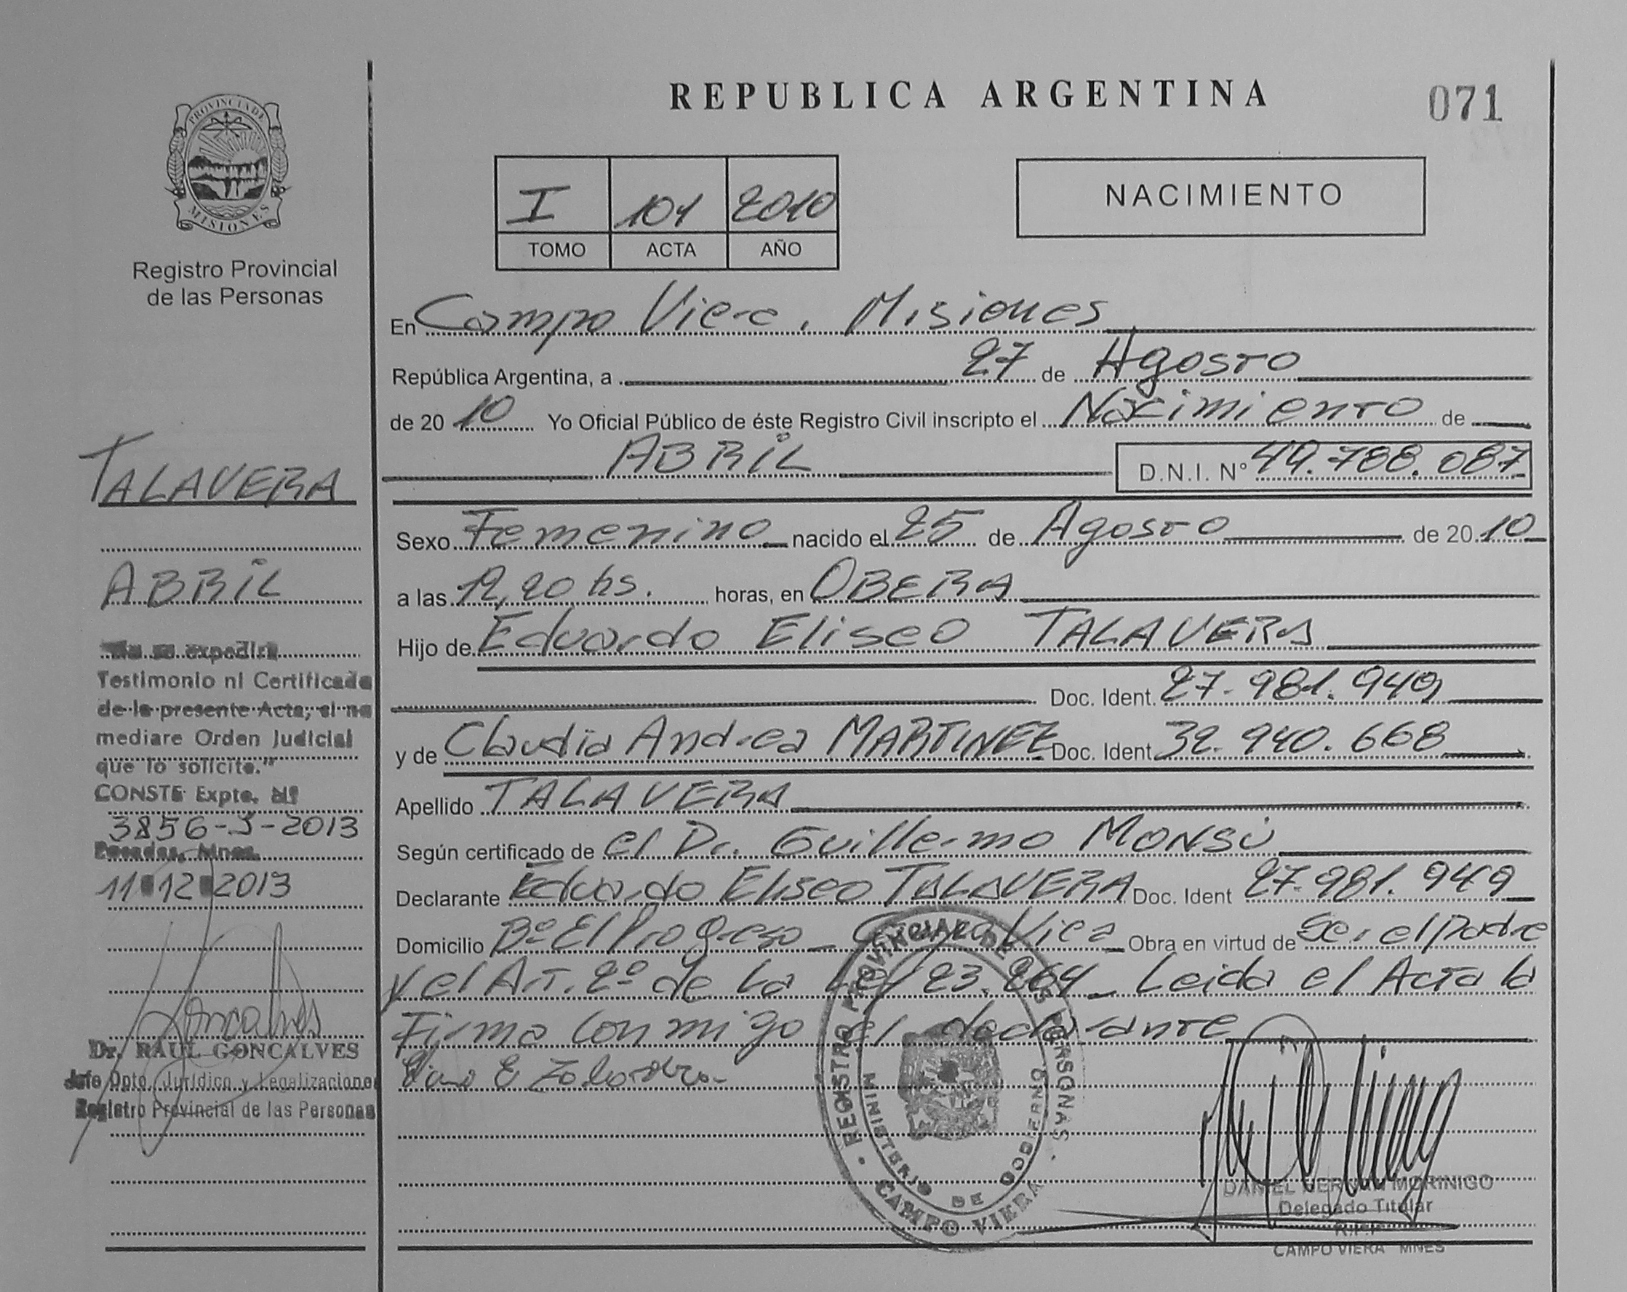 REPUBLICA ARGENTINA
071
PROVINCIA DE
MISIONES
Registro Provincial
de las Personas
I 101 2010
TOMO ACTA AÑO
NACIMIENTO
En Campo Viera, Misiones
República Argentina, a 27 de Agosto
de 20 10 Yo Oficial Público de éste Registro Civil inscripto el Nacimiento de
ABRIL D.N.I. Nº 49.788.087
Sexo Femenino nacido el 25 de Agosto de 20 10
a las 12,20 hs. horas, en OBERA
Hijo de Eduardo Eliseo TALAVERA
Doc. Ident. 27.981.949
y de Claudia Andrea MARTINEZ Doc. Ident. 32.940.668
Apellido TALAVERA
Según certificado de el Dr. Guillermo MONSÚ
Declarante Eduardo Eliseo TALAVERA Doc. Ident 27.981.949
Domicilio Bº El Progreso - Campo Viera Obra en virtud de Ser el padre
y el Art. 2º de la Ley 23.264 - Leida el Acta la
Firma conmigo el declarante
TALAVERA
ABRIL
"No se expedirá
Testimonio ni Certificado
de la presente Acta, si no
mediare Orden Judicial
que lo solicite."
CONSTE Expte. Nº
3856-J-2013
Posadas, Mnes.
11 12 2013
Dr. RAUL GONCALVES
Jefe Dpto. Jurídico y Legalizaciones
Registro Provincial de las Personas
REGISTRO PROVINCIAL DE LAS PERSONAS
MINISTERIO DE GOBIERNO
CAMPO VIERA
DANIEL HERNAN MORINIGO
Delegado Titular
R.P.P
CAMPO VIERA MNES